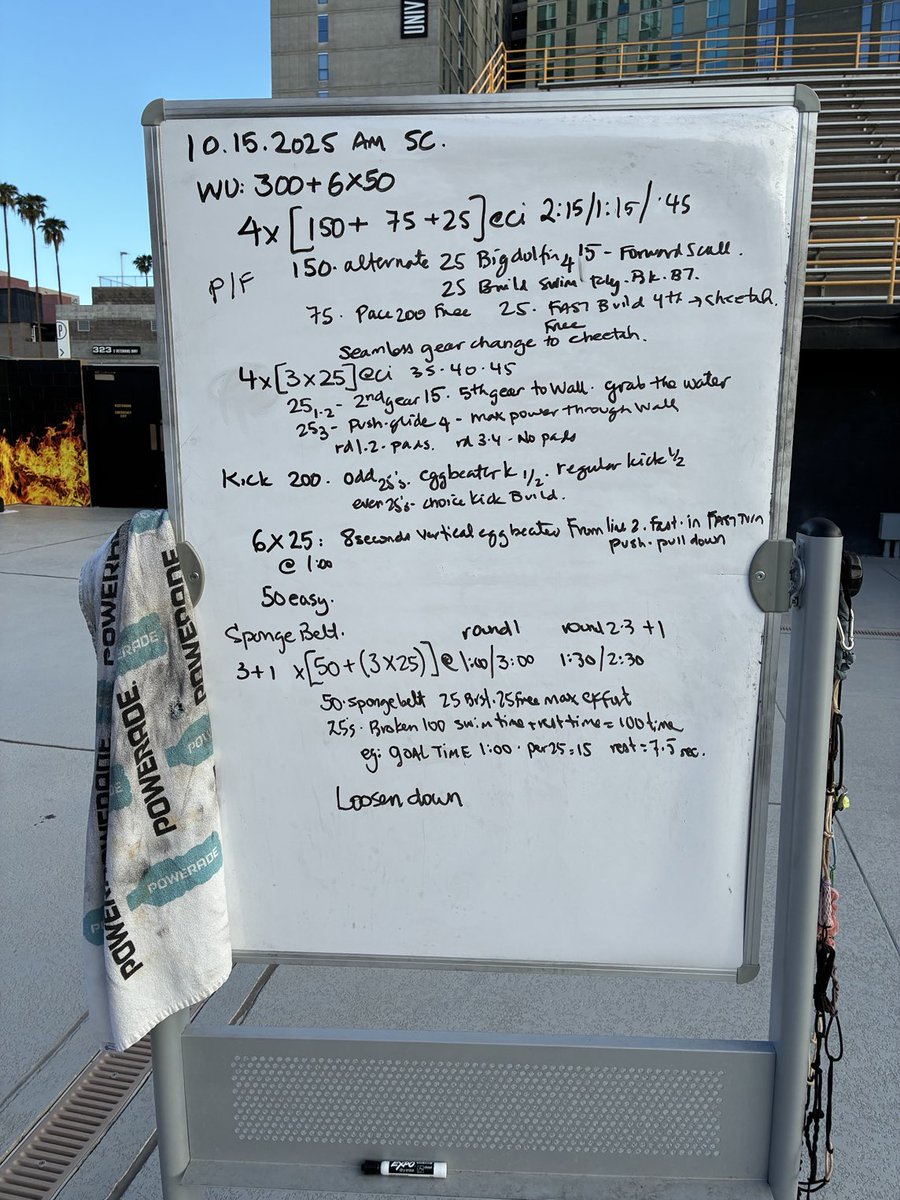 UNIV
10.15.2025 AM SC.
WU: 300+6x50
4x [150+ 75 +25] @ci 2:15/1:15/ :45
P/F
150. alternate 25 Big dolfin 4, 15 - Forward Scull.
25 Build Swim Bk. B7.
75. Pace 200 Free 25. FAST Build 4th → cheetah.
Free
Seamless gear change to cheetah.
4x [3x25] @ci 35.40.45
25 1-2 - 2nd gear 15. 5th gear to Wall. grab the water
25 3 - Push.glide 4 - max power through Wall
rd 1.2 - pads. rd 3.4 - No pads
Kick 200. odd 25's. eggbeater k 1/2. regular kick 1/2
even 25's - choice kick Build.
6x25: 8 seconds vertical eggbeater From line 2. fast in FAST Turn
@ 1:00 push. pull down
50 easy.
Sponge Belt. round 1 round 2.3 +1
3+1 x [50+(3x25)] @ 1:00/3:00 1:30/2:30
50. sponge belt 25 Brst. 25 free max effort
25s. Broken 100 swim time + rest time = 100 time
eg: GOAL TIME 1:00. per 25=15 rest = 7.5 sec.
Loosen down
323
P
POWERADE
POWERADE
POWERADE
POWERADE
POWERADE
EXPO